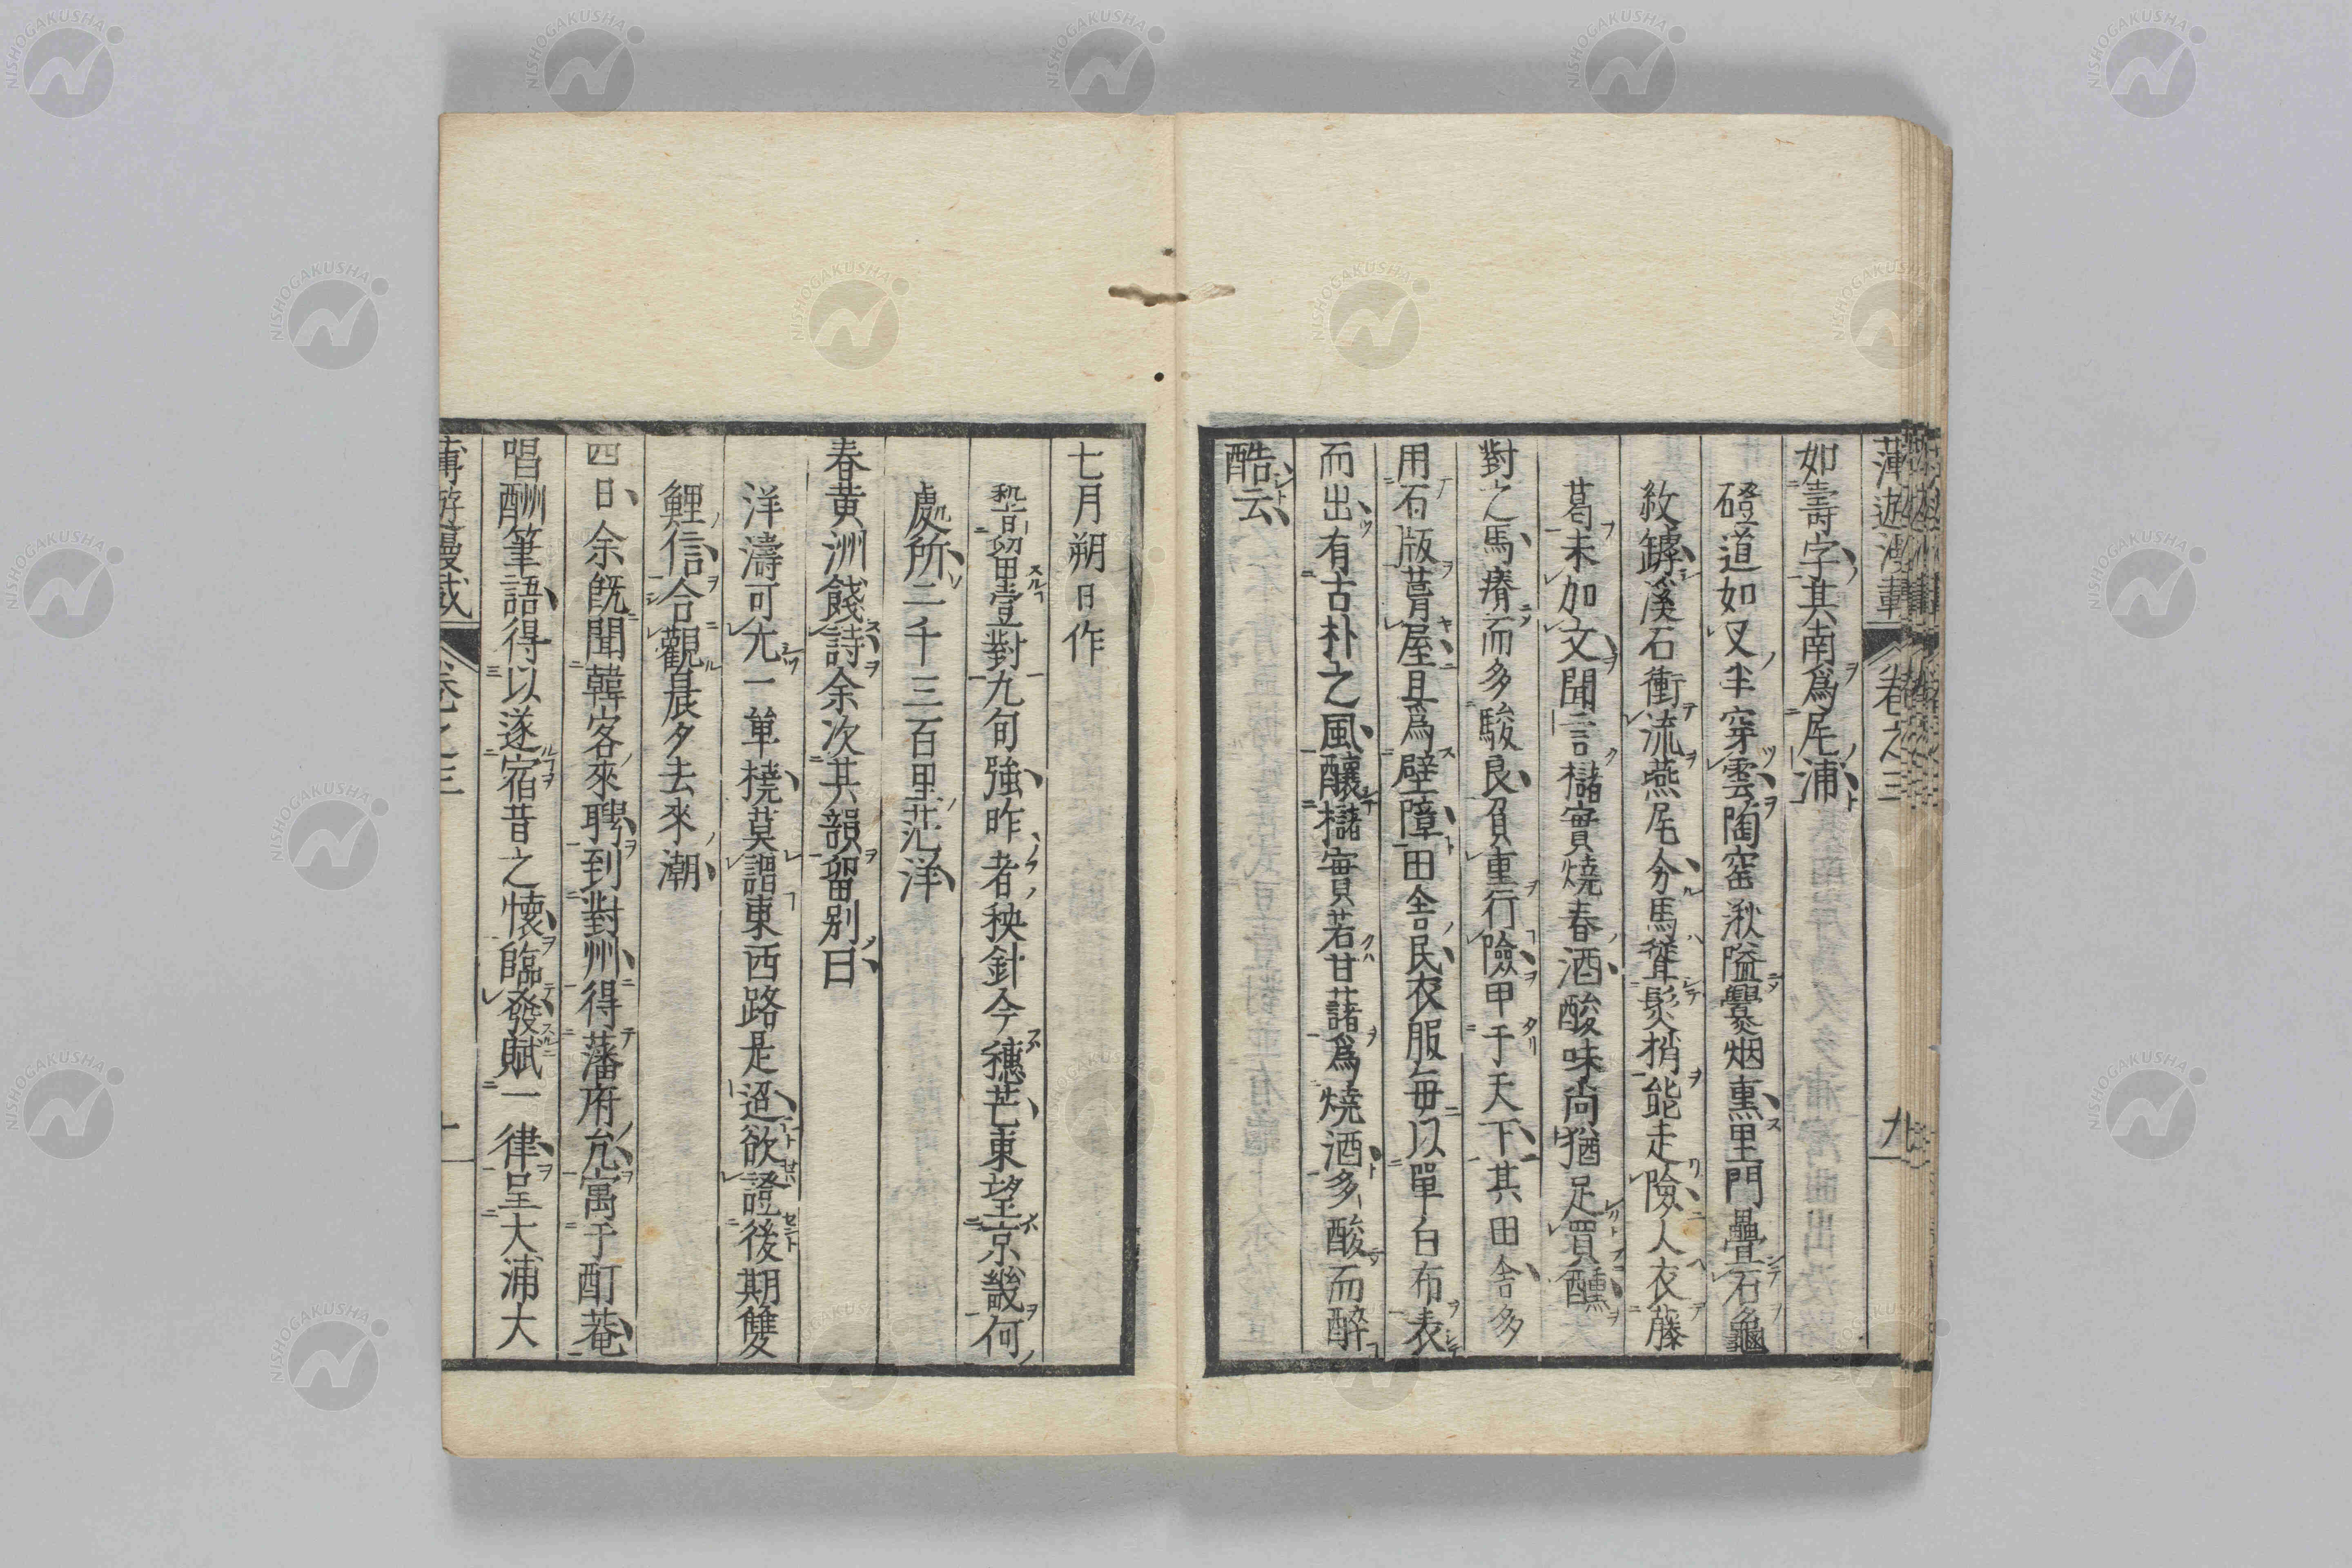 薄遊漫載 卷之三 九
如壽字其南爲尾浦
磴道如叉半穿雲陶窑湫隘爨烟熏里門疊石龜
紋罅溪石衝流燕尾分馬聳髮梢能走險人衣藤
葛未加文聞言櫧實燒春酒酸味尚猶足買醺
對之馬瘠而多駿良負重行險甲于天下其田舍多
用石版葺屋且爲壁障田舍民衣服每以單白布表
而出有古朴之風釀櫧實若甘藷爲燒酒多酸而醉
酷云
七月朔日作
暫留壹對九旬強昨者秧針今穗芒東望京畿何
處所二千三百里茫洋
春黄洲餞詩余次其韻留別曰
洋濤可尤一單橈莫謂東西路是迢欲證後期雙
鯉信合觀晨夕去來潮
四日余既聞韓客來聘到對州得藩府允寓于酊菴
唱酬筆語得以遂宿昔之懷臨發賦一律呈大浦大
薄遊漫載 卷之三